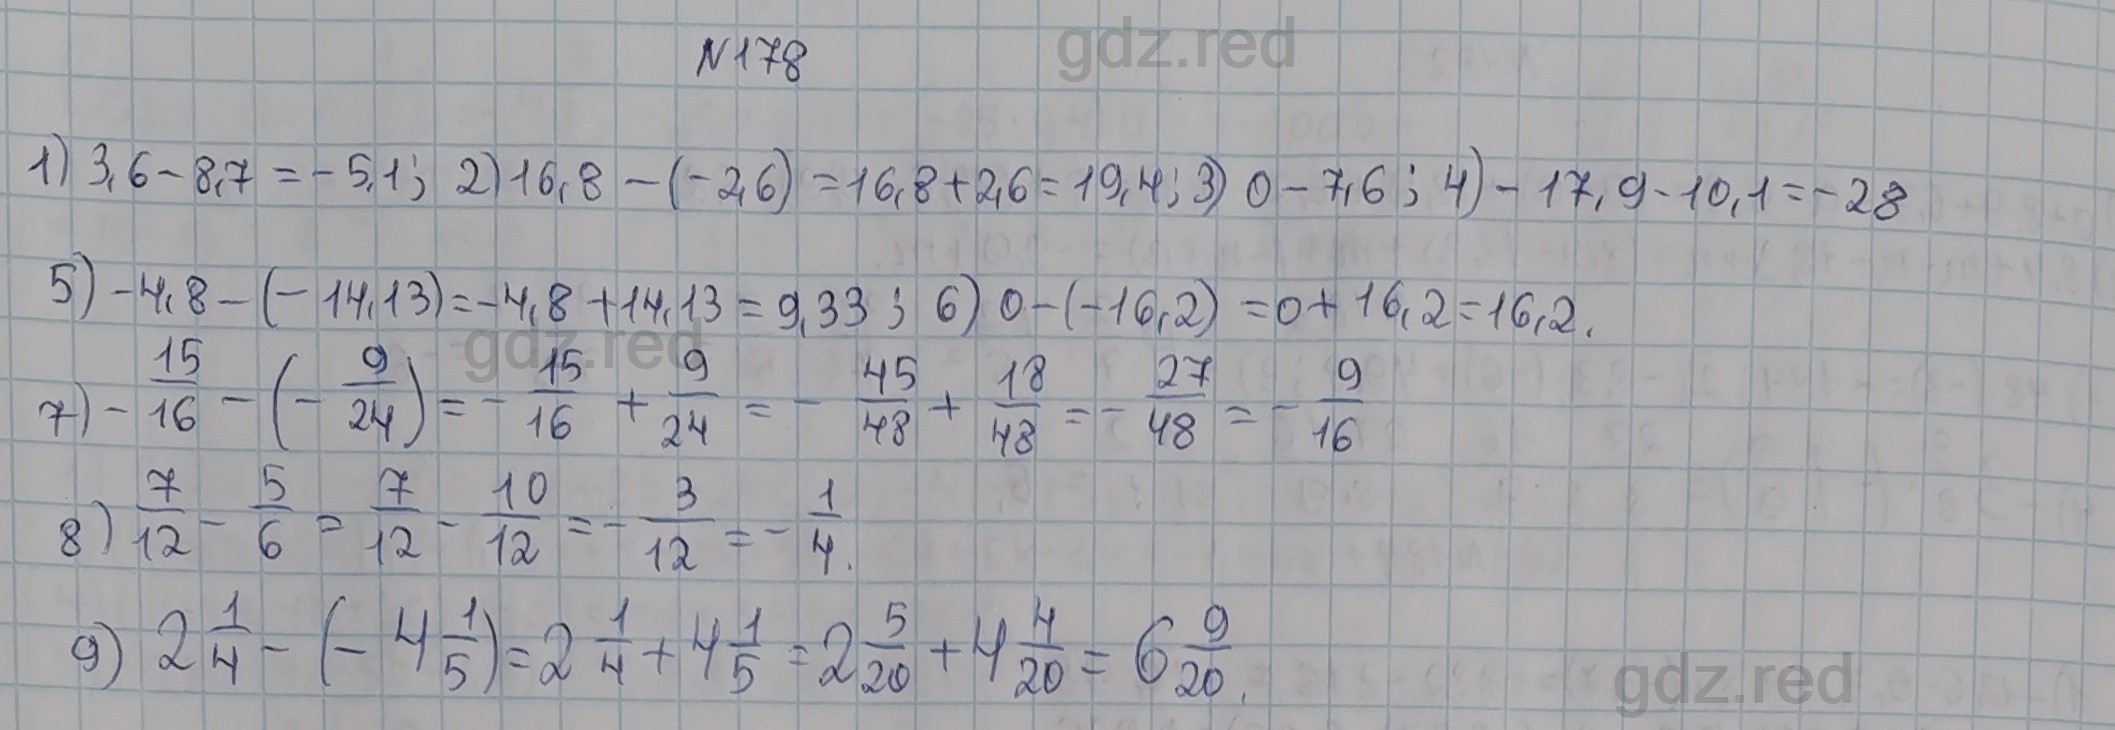 N178
gdz.red
1) 3,6-8,7=-5,1; 2) 16,8-(-2,6)=16,8+2,6=19,4; 3) 0-7,6; 4) -17,9-10,1=-28
5) -4,8-(-14,13)=-4,8+14,13=9,33; 6) 0-(-16,2)=0+16,2=16,2.
gdz.red
7) -15/16-(-9/24)=-15/16+9/24=-45/48+18/48=-27/48=-9/16
8) 7/12-5/6=7/12-10/12=-3/12=-1/4.
9) 2 1/4-(-4 1/5)=2 1/4+4 1/5=2 5/20+4 4/20=6 9/20.
gdz.red